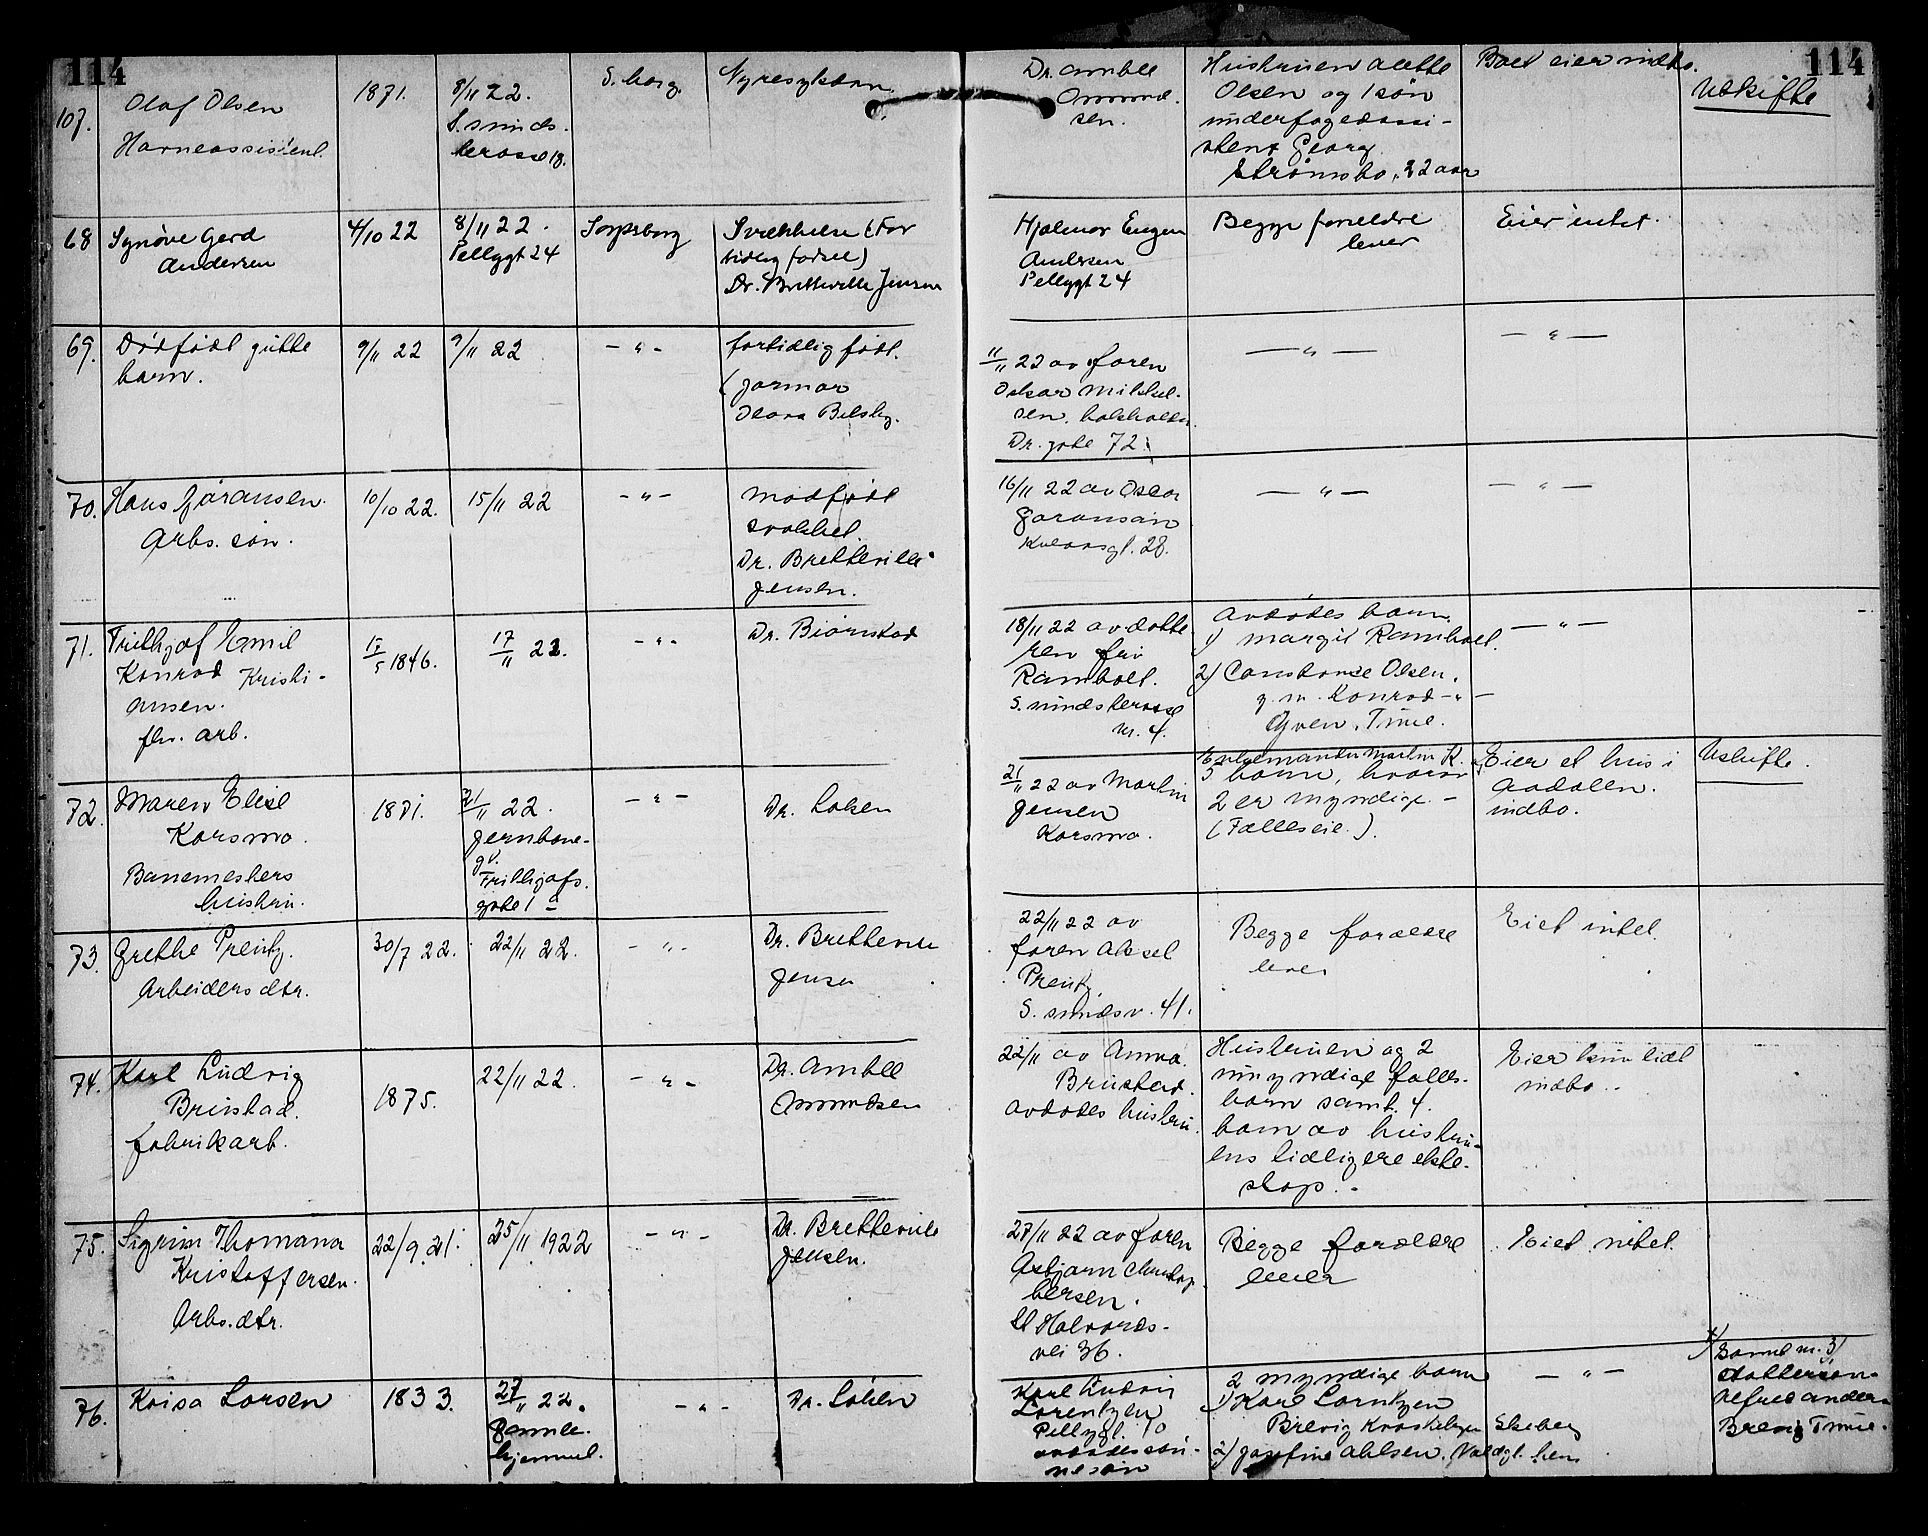 114
114
107.
Olaf Olsen
Havneassistent.
1871.
8/11 22.
S.minds.
terasse 13.
S.borg.
Nyresykdom.
Dr. Amble
Ammund.
sen.
Hustruen Anette
Olsen og 1 søn
underfogedassi-
stent Georg
Strømsbo, 22 aar
Boet eier indbo.
Uskifte
68
Synøve Gerd
Andersen
4/10 22
8/11 22.
Pellygt 24
Sarpsborg
Svækkelse (For
tidlig fødsel)
Dr. Bretteville Jensen
Hjalmar Eugen
Andersen
Pellygt 24
Begge forældre
lever
Eier intet.
69.
Dødfødt gutte
barn.
9/11 22
9/11 22
- " -
fortidlig født.
(jormor
Olava Bilsby.
11/11 22 av faren
Oskar Mikkel-
sen,
Dr. gate 72.
- " -
- " -
70.
Hans Gøransen.
Arbs. søn.
10/10 22.
15/11 22
- " -
medfødt
svakhet.
Dr. Bretteville
Jensen.
16/11 22 av Oscar
Gøransen
gt. 28.
- " -
- " -
71.
Frithjof Emil
Konrad Kristi-
ansen.
fhv. arb.
15/5 1846.
17/11 22.
- " -
Dr. Biørnstad
18/11 22 av datte
ren fru
Ramboel.
S. mindsterasse
nr. 4.
Avdødes barn.
1) Margit Ramboel.
2) Constance Olsen,
g. m. Konrad - " -
Gøen, Tune.
- " -
72.
Maren Elise
Korsmo.
Banemesters
hustru.
1871.
21/11 22.
Jernbane-
gt.
Frithjofs.
gate 1 a
- " -
Dr. Løken
21/11 22 av Martin
Jensen
Korsmo.
Enkemanden Martin K. og
5 barn, hvorav
2 er myndige. -
(Fælleseie.).
Eier et hus i
Aadalen.
indbo.
Uskifte.
73.
Grethe Prentz.
Arbeiders dtr.
30/7 22.
22/11 22.
- " -
Dr. Bretteville
Jensen
22/11 22 av
faren Aksel
Prentz
S. mindsv. 41.
Begge forældre
lever
Eiet intet.
74.
Karl Ludvig
Brustad.
fabrikarb.
1875.
22/11 22.
- " -
Dr. Amble
Ammundsen
22/11 av Anna
Brustad.
avdødes hustru.
Hustruen og 2
umyndige fælles-
barn samt 4
barn av hustru-
ens tidligere ekte-
skap. -
Eier kun lidt
indbo..
75.
Sigrun Thomana
Kristoffersen.
Arbs. dtr.
22/9 21.
25/11 1922
- " -
Dr. Bretteville
Jensen.
27/11 22 av faren
Asbjørn Christop
hersen.
St Halvards-
vei 36.
Begge forældre
lever
Eiet intet.
76.
Kaisa Larsen
1833.
27/11 22.
Gamle-
hjemmet.
- " -
Dr. Løken
Karl Ludvig
Lorentzen
Pellygt. 10
avdødes søn-
nesøn
2 myndige barn
1) Karl Lorntzen
Brevig Skeberg
2) Josefine Ahlsen,
- " -
x) Barnet nr. 3)
Dattersøn
Alfred Anders.
Brevig Tune.